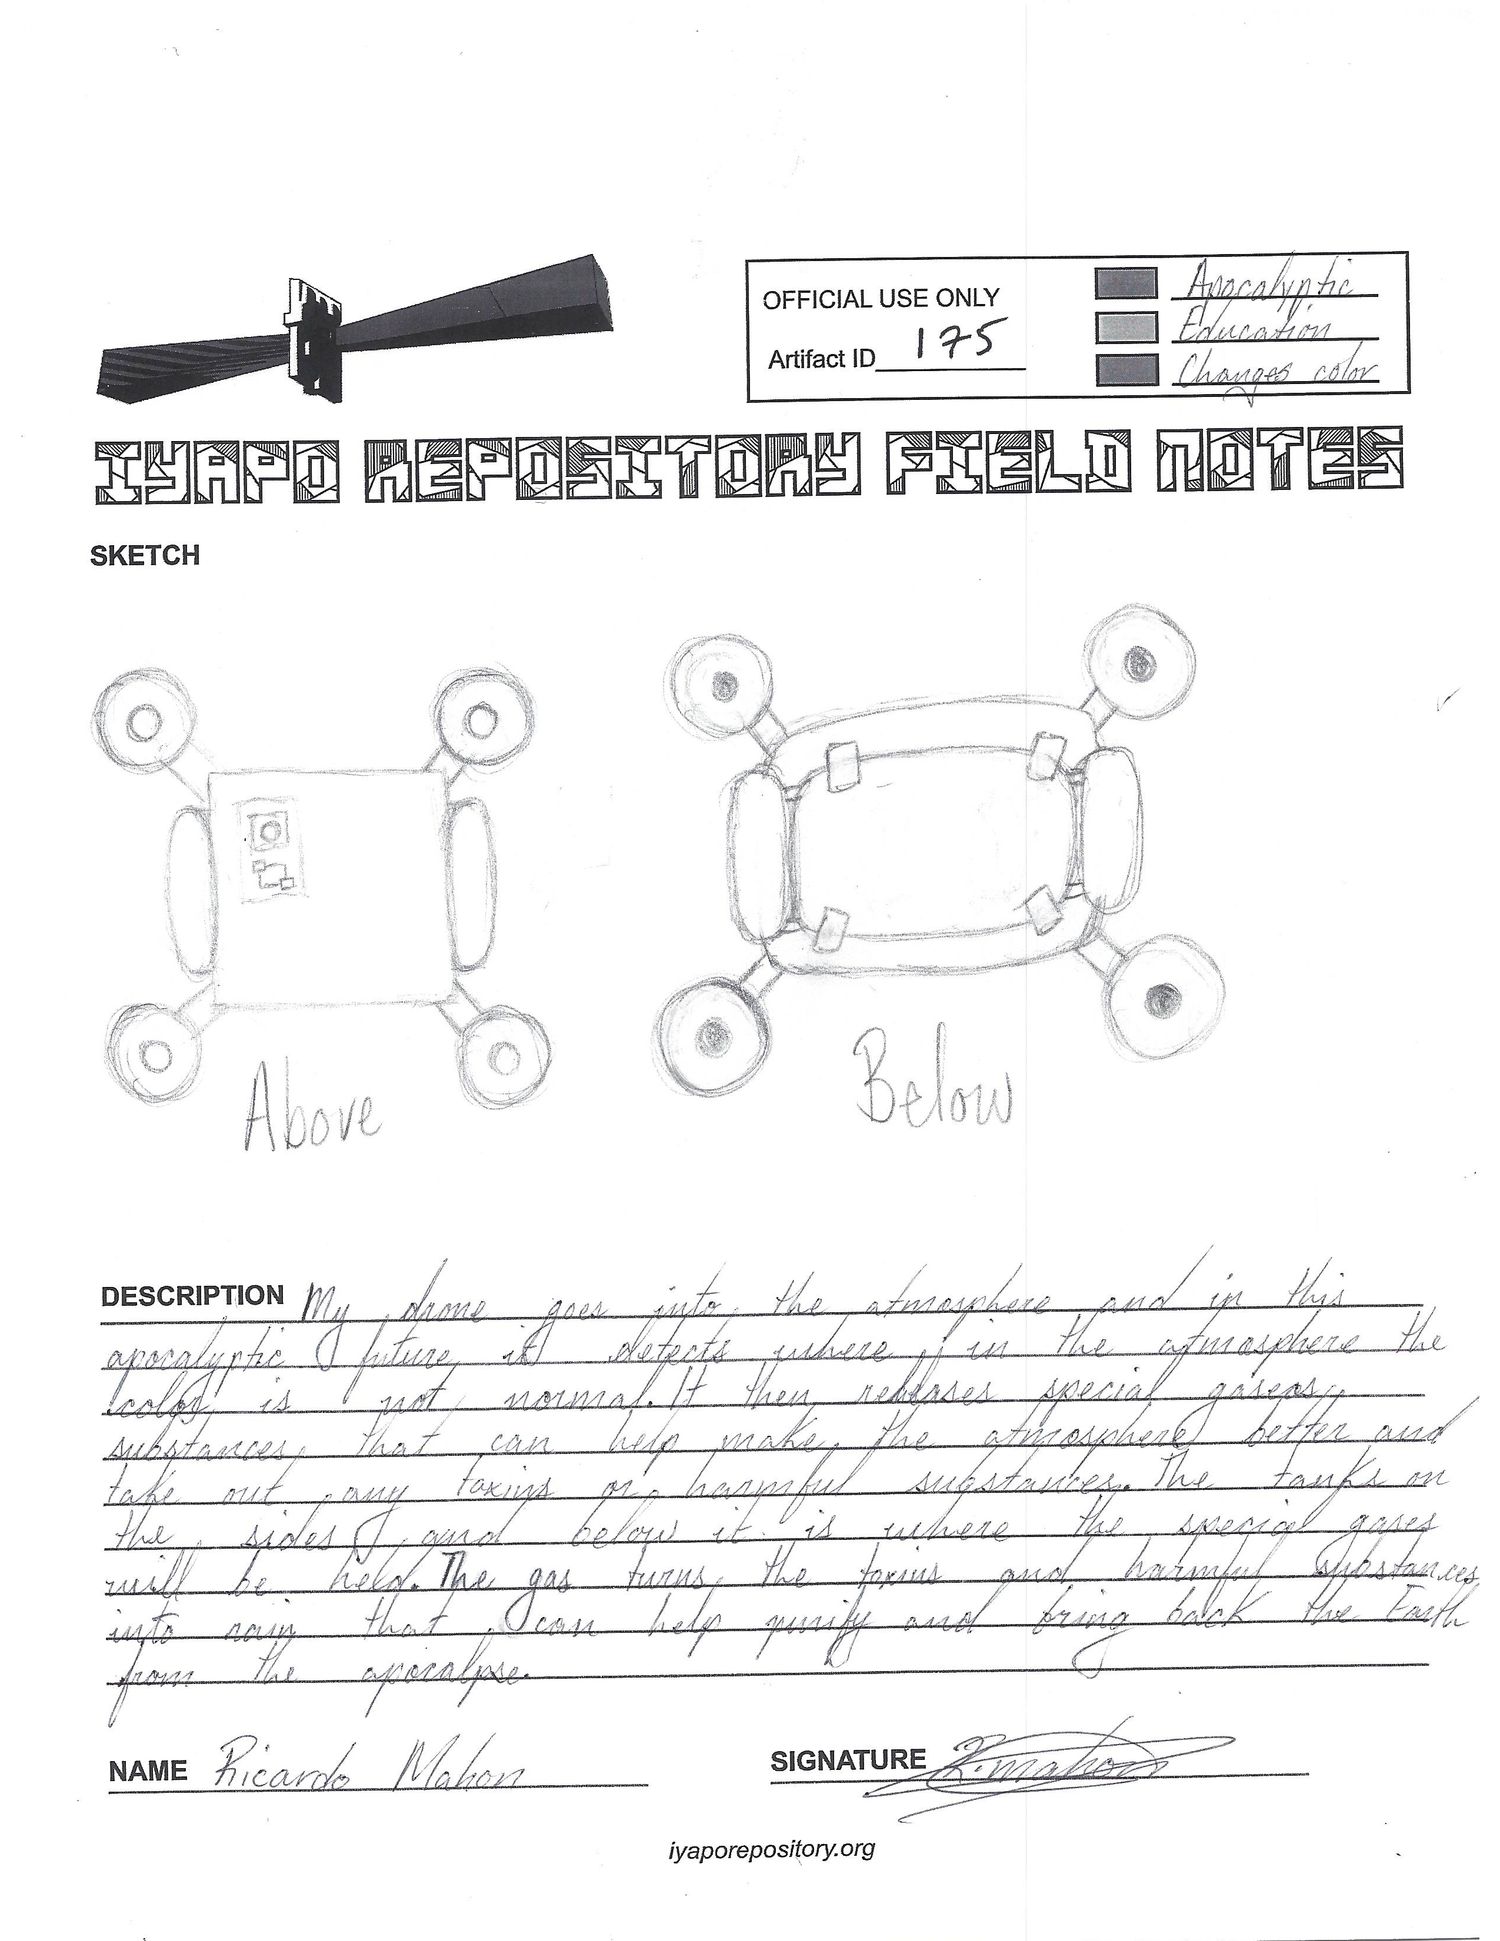 OFFICIAL USE ONLY
Artifact ID 175
Apocalyptic
Education
Changes color
IYAPO REPOSITORY FIELD NOTES
SKETCH
Above
Below
DESCRIPTION My drone goes into the atmosphere and in this
apocalyptic future it detects where in the atmosphere the
color is not normal. It then releases special gaseos
substances that can help make the atmosphere better and
take out any toxins or harmful substances. The tanks on
the sides and below it is where the special gases
will be held. The gas turns the toxins and harmful substances
into rain that can help purify and bring back the Earth
from the apocalpse.
NAME Ricardo Mahon
SIGNATURE R. Mahon
iyaporepository.org